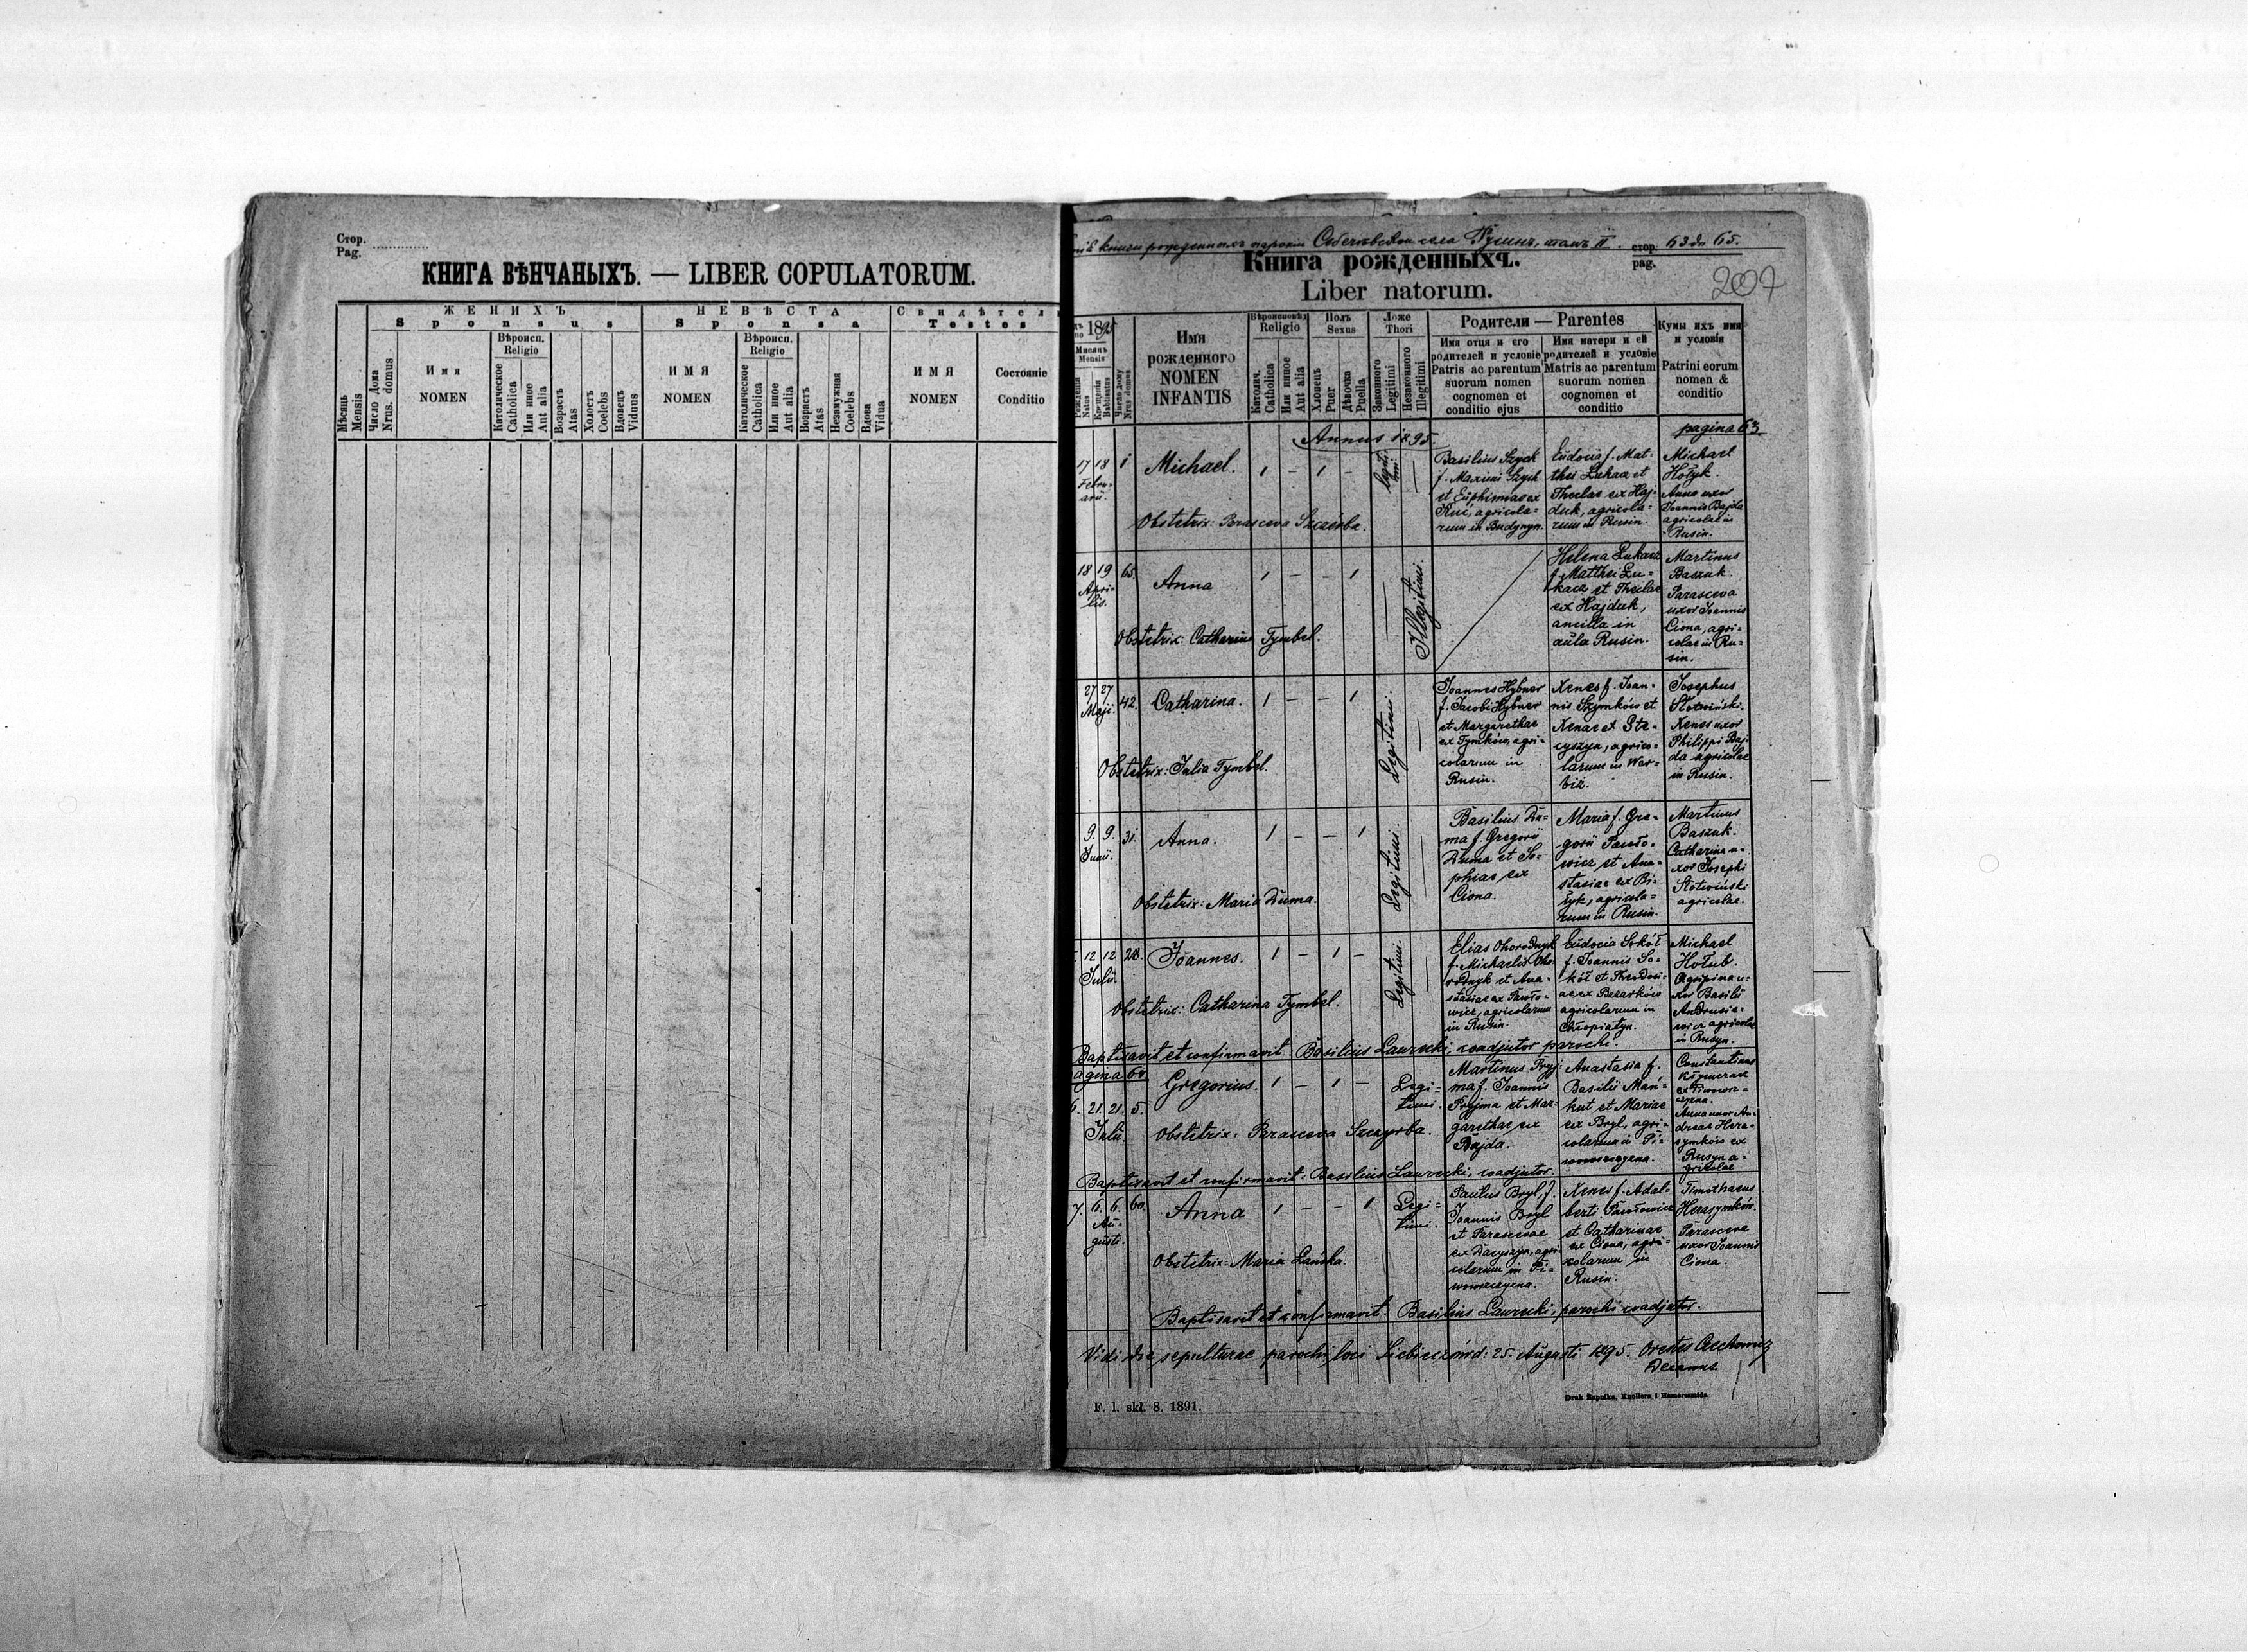 Стор.
Pag.
КНИГА ВѢНЧАНЫХЪ. — LIBER COPULATORUM.
Мѣсяць
Mensis
Число Дома
Nrus. domus
ЖЕНИХЪ
Sponsus
Имя
NOMEN
Вѣроисп.
Religio
Католическое
Catholica
Или иное
Aut alia
Возрастъ
Ætas
Холостъ
Coelebs
Вдовецъ
Viduus
НЕВѢСТА
Sponsa
ИМЯ
NOMEN
Вѣроисп.
Religio
Католическое
Catholica
Или иное
Aut alia
Возрастъ
Ætas
Незамужная
Coelebs
Вдова
Vidua
Свидѣтели
Testes
ИМЯ
NOMEN
Состояніе
Conditio
книги рожденныхъ парохіи села Русинъ, томъ II. стор. 63 до 65.
pag.
Книга рожденныхъ.
Liber natorum.
207
1895
Мѣсяць
Mensis
Рожденія
Natus
Крещенія
Baptisatus
Число дому
Nrus domus
Имя
рожденного
NOMEN
INFANTIS
Вѣроисповѣд
Religio
Католич.
Catholica
Или иное
Aut alia
Полъ
Sexus
Хлопецъ
Puer
Дѣвочка
Puella
Ложе
Thori
Законного
Legitimi
Незаконного
Illegitimi
Родители — Parentes
Имя отца и его
родителей и условіе
Patris ac parentum
suorum nomen
cognomen et
conditio ejus
Имя матери и ей
родителей и условіе
Matris ac parentum
suorum nomen
cognomen et
conditio
Кумы ихъ имя
и условія
Patrini eorum
nomen &
conditio
Annus 1895.
pagina 63
17 18 1
Febru-
arii.
Michael. 1 – 1 –
Legiti-
mi.
Obstetrix: Parasceva Szczerba.
Basilius Szych
f. Maximi Szych
et Euphimiae ex
Kuć, agricola-
rum in Budynyn.
Eudocia f. Mat-
thei Lukacz et
Theclae ex Haj-
duk, agricola-
rum in Rusin.
Michael
Hołyk.
Anna uxor
Joannis Bajda
agricolae in
Rusin.
18 19 65.
Apri-
lis.
Anna 1 – – 1
Illegitimi.
Obstetrix: Catharina Tymbel.
Helena Lukacz
f. Matthei Lu-
kacz et Theclae
ex Hajduk,
ancilla in
aula Rusin.
Martinus
Baszuk.
Parasceva
uxor Joannis
Ciona, agri-
colae in Ru-
sin.
27 27 42.
Maji.
Catharina. 1 – – 1
Legitimi.
Obstetrix: Julia Tymbel.
Joannes Hybner
f. Jacobi Hybner
et Margarethae
ex Tymków, agri-
colarum in
Rusin.
Xenes f. Joan-
nis Szymków et
Xenae ex Ste-
cyszyn, agrico-
larum in Wer-
biż.
Josephus
Słotwiński.
Xenes uxor
Philippi Baj-
da agricolae
in Rusin.
9. 9. 31.
Junii.
Anna. 1 – – 1
Legitimi.
Obstetrix: Maria Duma.
Basilius Du-
ma f. Gregorii
Duma et So-
phiae ex
Ciona.
Maria f. Gre-
gorii Pawło-
wicz et Ana-
stasiae ex Bi-
łyk, agricola-
rum in Rusin.
Martinus
Baszuk.
Catharina u-
xor Josephi
Słotwiński
agricolae.
12 12 28.
Julii.
Joannes. 1 – 1 –
Legitimi.
Obstetrix: Catharina Tymbel.
Elias Ohorodnyk
f. Michaelis Oho-
rodnyk et Ana-
stasiae ex Pawło-
wicz, agricolarum
in Rusin.
Eudocia Sokół
f. Joannis So-
kół et Theodosi-
ae ex Bezarków
agricolarum in
Chłopiatyn.
Michael
Hołub.
Agripina u-
xor Basilii
Andrusie-
wicz agricolae
in Rusyn.
Baptisavit et confirmavit: Basilius Lawrecki, coadjutor parochi.
agina 64
6. 21. 21. 5.
Julii.
Gregorius. 1 – 1 –
Legi-
timi.
Obstetrix: Parasceva Szczyrba.
Martinus Pryj-
ma f. Joannis
Pryjma et Mar-
garethae ex
Bajda.
Anastasia f.
Basilii Man-
kut et Mariae
ex Bryl, agri-
colarum in Pi-
wowszczyzna.
Constantinus
ex Piwowsz-
czyzna.
Anna uxor An-
dreae Hera-
symków ex
Rusyn a-
gricolae
Baptisavit et confirmavit: Basilius Lawrecki, coadjutor.
7. 6. 6. 60.
Au-
gusti.
Anna 1 – – 1
Legi-
timi.
Obstetrix: Maria Łańska.
Paulus Bryl, f.
Joannis Bryl
et Parascevae
ex Dacyszyn, agri-
colarum in Pi-
wowszczyzna.
Xenes f. Adal-
berti Pawłowicz
et Catharinae
ex Ciona, agri-
colarum in
Rusin.
Timotheus
Herasymków.
Parasceva
uxor Joannis
Ciona.
Baptisavit et confirmavit: Basilius Lawrecki, parochi coadjutor.
Vidi die sepulturae parochi loci Siebieczów d: 25. Augusti 1895. Orestes Czechowicz
Decanus
F. l. skł. 8. 1891.
Druk Żupnika, Knollera i Hamerszmida